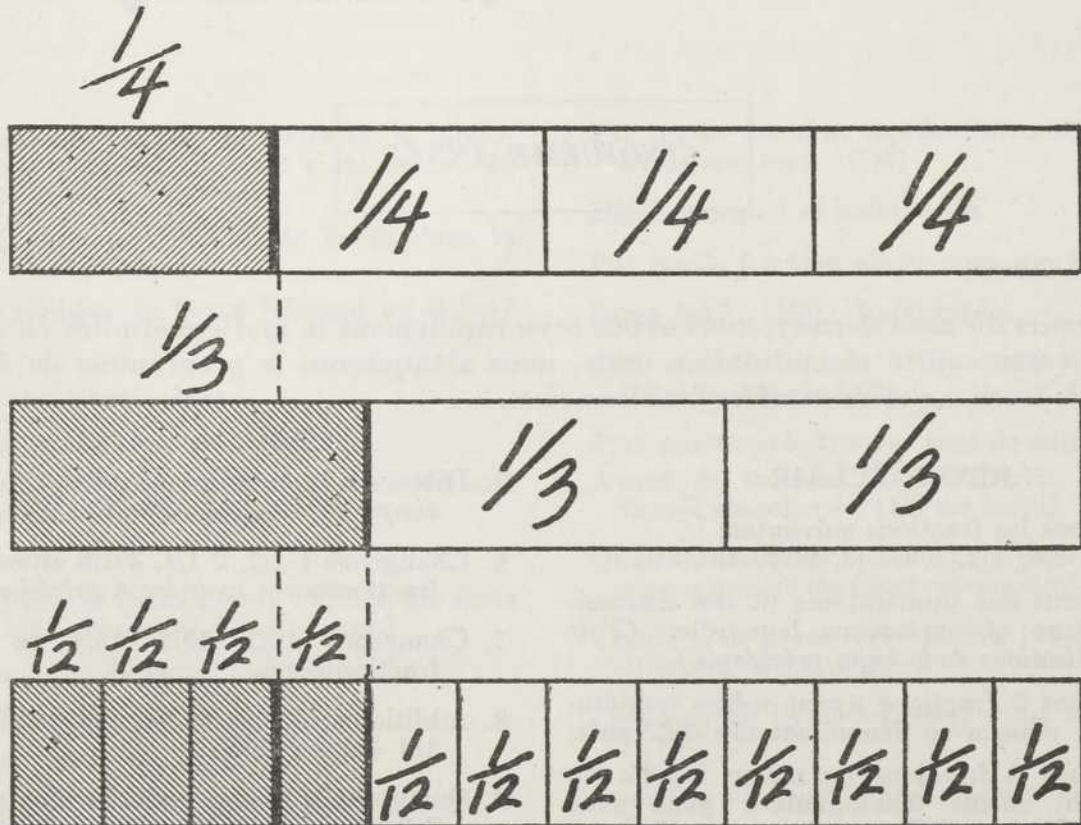 1/4
1/4 1/4 1/4
1/3
1/3 1/3
1/12 1/12 1/12 1/12
1/12 1/12 1/12 1/12 1/12 1/12 1/12 1/12